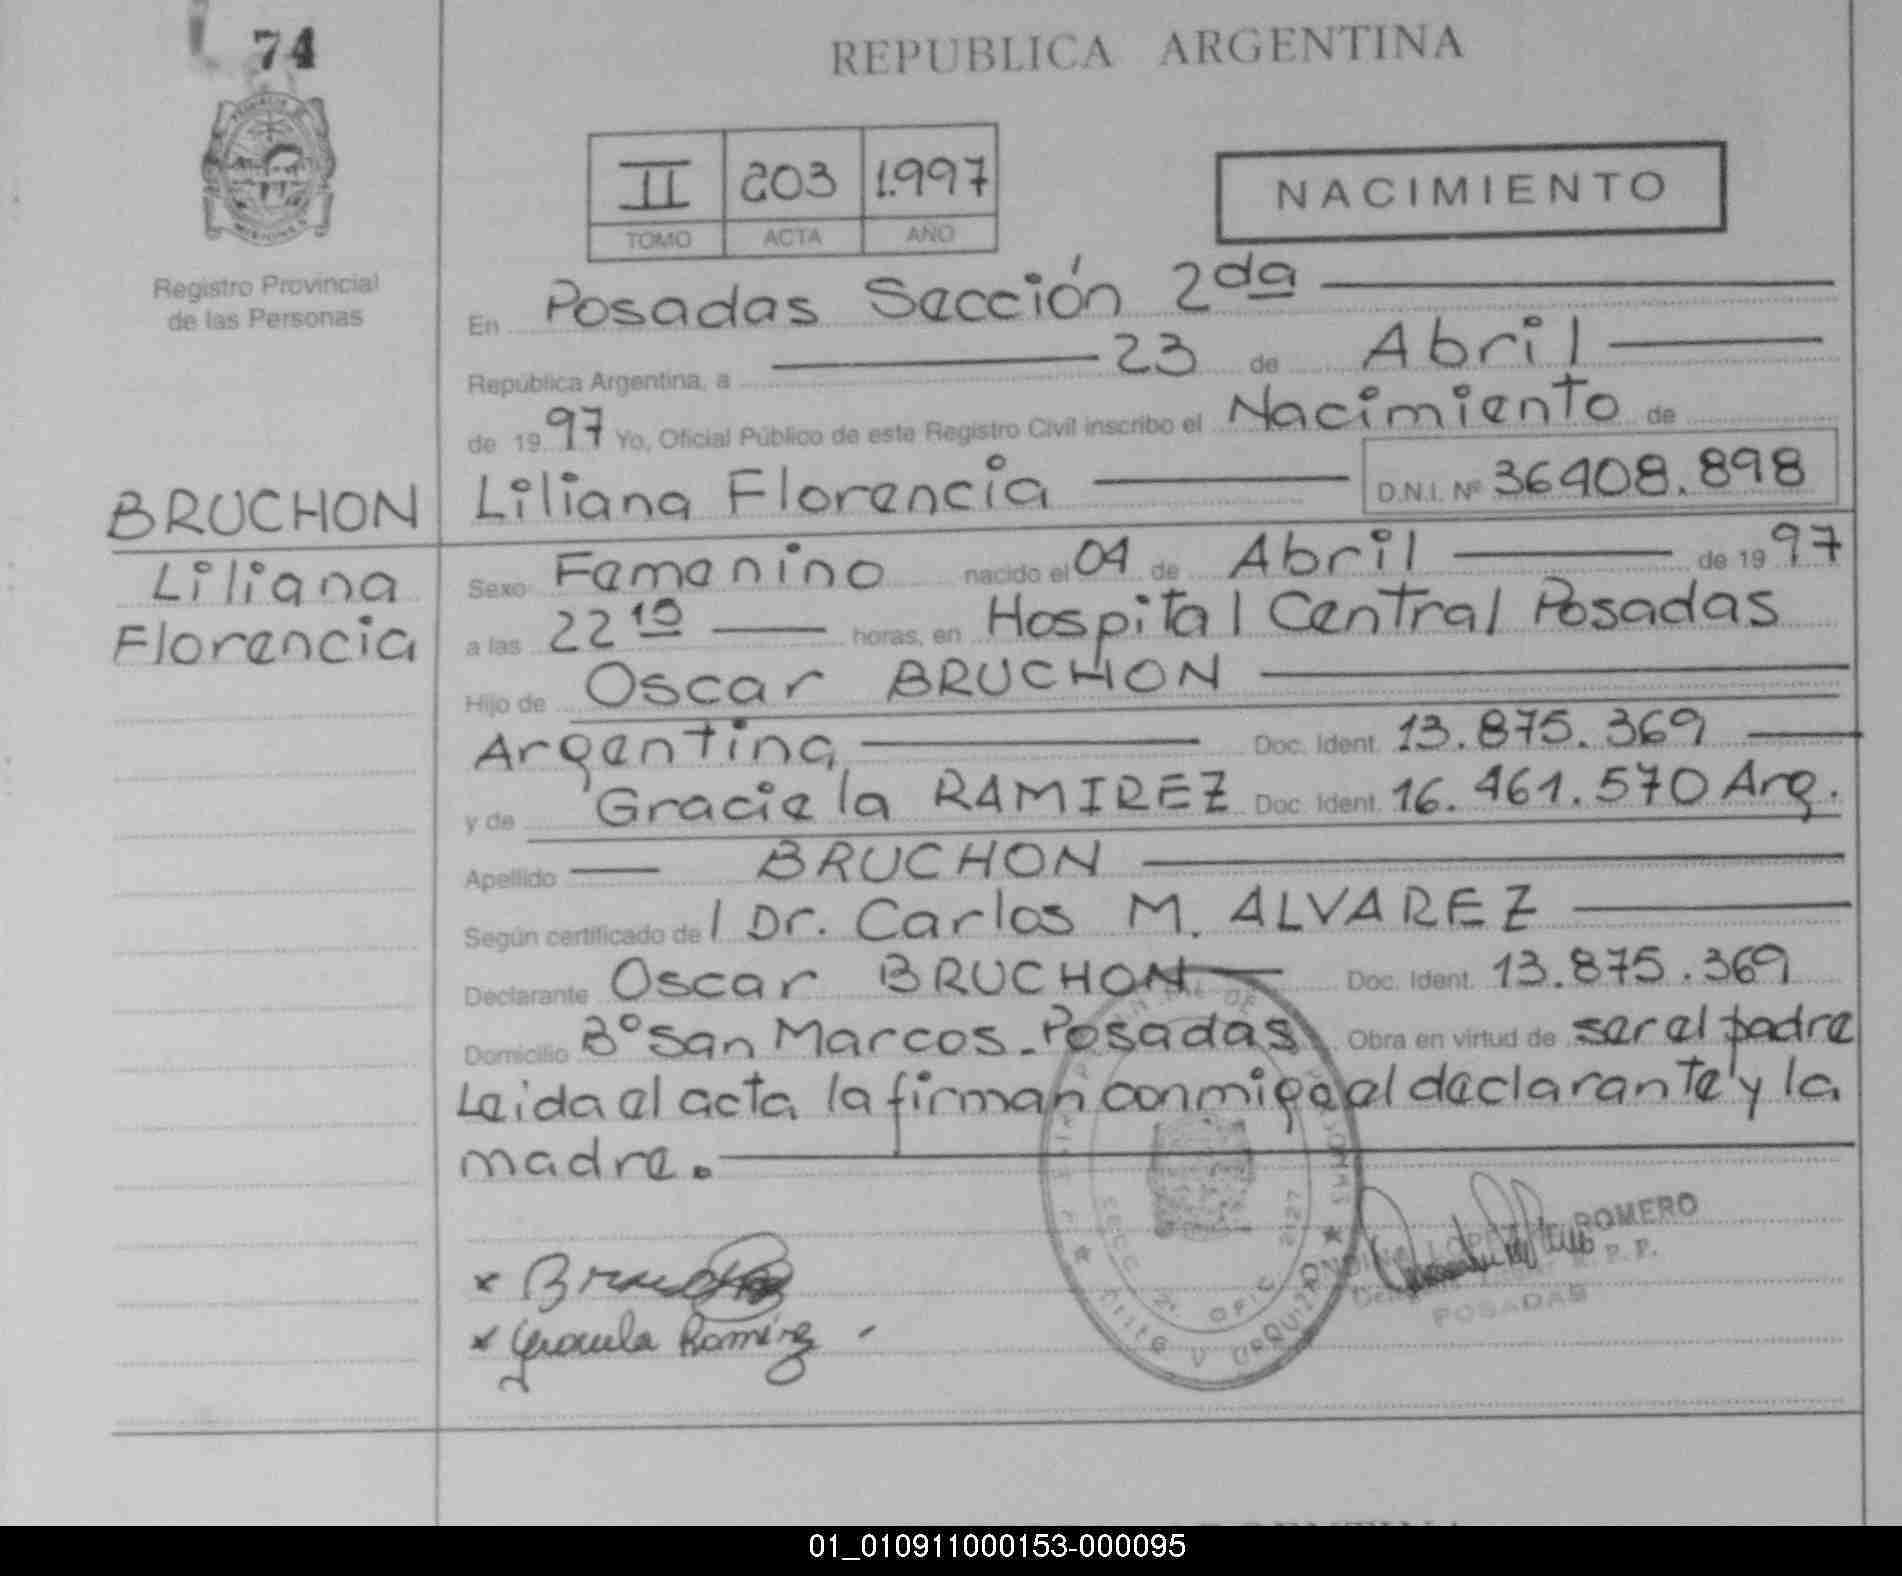 74
REPUBLICA ARGENTINA
II 203 1.997
TOMO ACTA AÑO
NACIMIENTO
MISIONES
Registro Provincial
de las Personas
En Posadas Sección 2da
República Argentina, a 23 de Abril
de 1997 Yo, Oficial Público de este Registro Civil inscribo el Nacimiento de
BRUCHON
Liliana
Florencia
Liliana Florencia D.N.I. Nº 36408.898
Sexo Femenino nacido el 04 de Abril de 1997
a las 22 10 horas, en Hospital Central Posadas
Hijo de Oscar BRUCHON
Argentina Doc. Ident. 13.875.369
y de Graciela RAMIREZ Doc. Ident. 16.461.570 Arg.
Apellido BRUCHON
Según certificado de l Dr. Carlos M. ALVAREZ
Declarante Oscar BRUCHON Doc. Ident. 13.875.369
Domicilio Bº San Marcos - Posadas Obra en virtud de ser el padre
Leida el acta la firman conmigo el declarante y la
madre.
x
x Graciela Ramirez
ROMERO
POSADAS
01_010911000153-000095